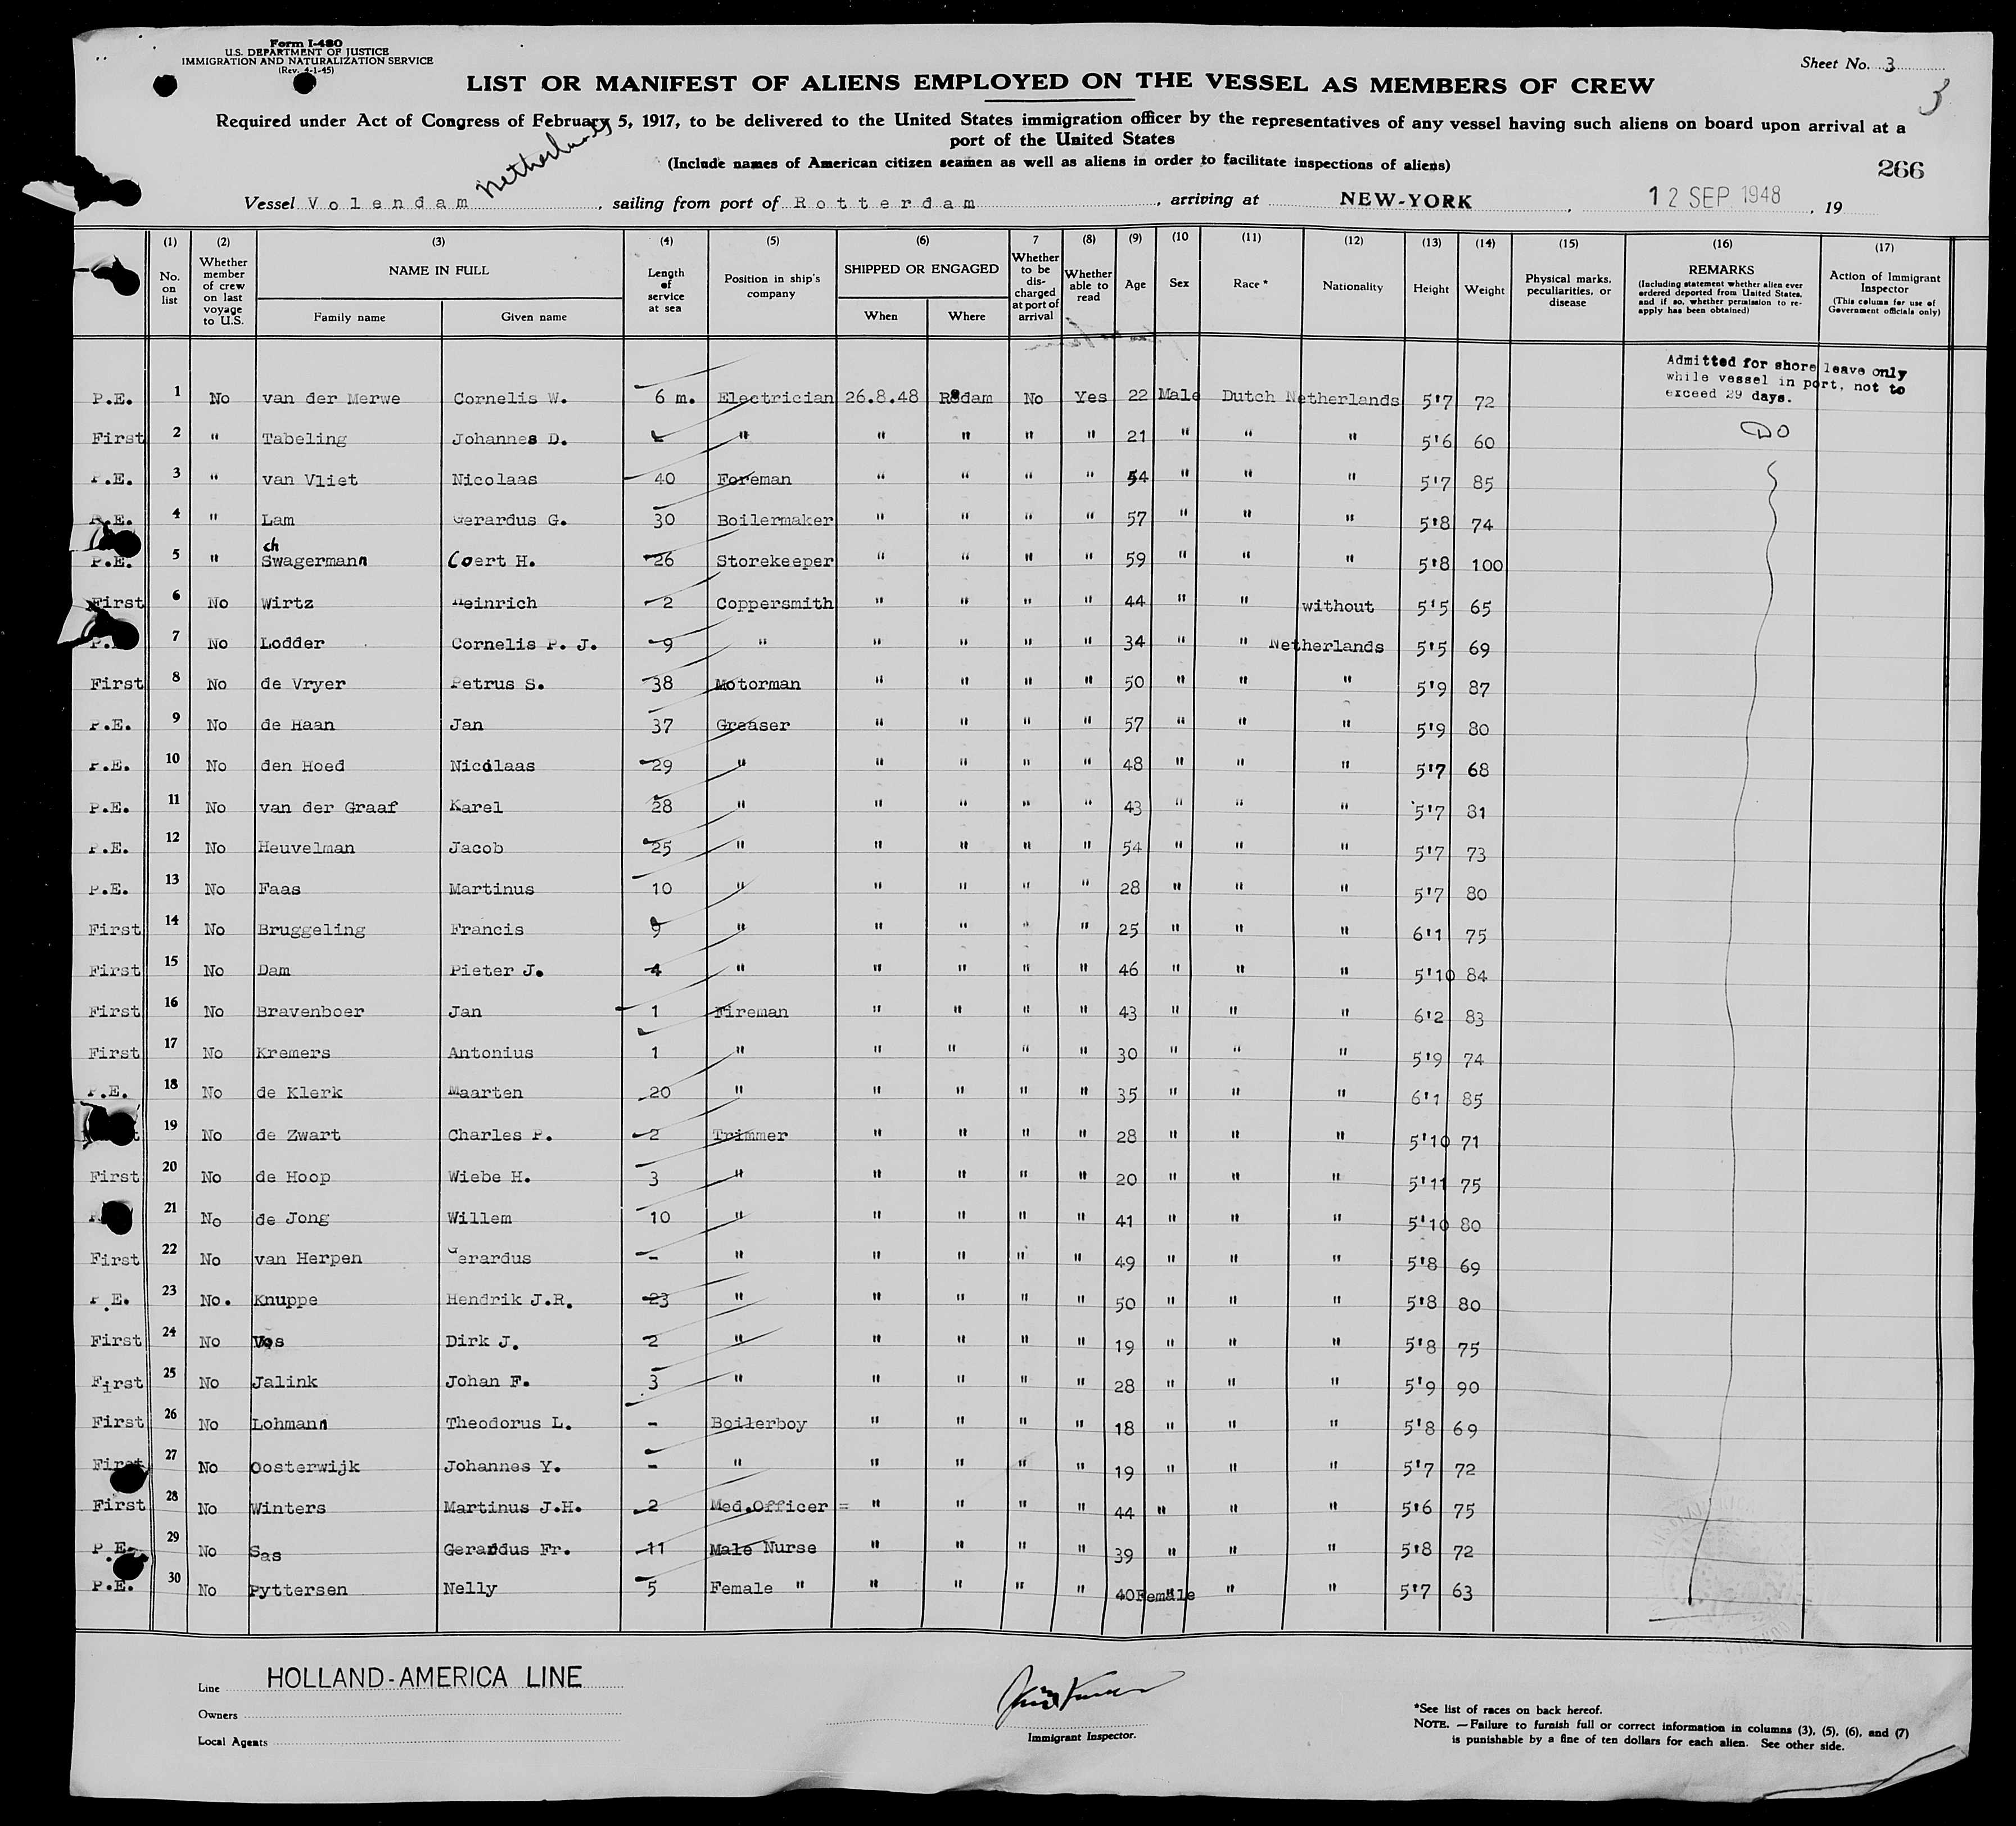 Form I-480
U.S. DEPARTMENT OF JUSTICE
IMMIGRATION AND NATURALIZATION SERVICE
(Rev. 4-1-45)
Sheet No. 3
3
LIST OR MANIFEST OF ALIENS EMPLOYED ON THE VESSEL AS MEMBERS OF CREW
Required under Act of Congress of February 5, 1917, to be delivered to the United States immigration officer by the representatives of any vessel having such aliens on board upon arrival at a
port of the United States
(Include names of American citizen seamen as well as aliens in order to facilitate inspections of aliens)
266
Netherlands
Vessel Volendam, sailing from port of Rotterdam, arriving at NEW-YORK, 12 SEP 1948, 19
(1) (2) (3) (4) (5) (6) 7 (8) (9) (10 (11) (12) (13) (14) (15) (16) (17)
No. on list
Whether member of crew on last voyage to U.S.
NAME IN FULL
Family name Given name
Length of service at sea
Position in ship's company
SHIPPED OR ENGAGED
When Where
Whether to be discharged at port of arrival
Whether able to read
Age Sex Race * Nationality Height Weight
Physical marks, peculiarities, or disease
REMARKS
(Including statement whether alien ever ordered deported from United States, and if so, whether permission to re-apply has been obtained)
Action of Immigrant Inspector
(This column for use of Government officials only)
Admitted for shore leave only
while vessel in port, not to
exceed 29 days.
P.E. 1 No van der Merwe Cornelis W. 6 m. Electrician 26.8.48 Rdam No Yes 22 Male Dutch Netherlands 5'7 72
First 2 " Tabeling Johannes D. " " " " " 21 " " " 5'6 60 DO
P.E. 3 " van Vliet Nicolaas 40 Foreman " " " " 54 " " " 5'7 85
P.E. 4 " Lam Gerardus G. 30 Boilermaker " " " " 57 " " " 5'8 74
ch
P.E. 5 " Swagermann Coert H. 26 Storekeeper " " " " 59 " " " 5'8 100
First 6 No Wirtz Heinrich 2 Coppersmith " " " " 44 " " without 5'5 65
P. 7 No Lodder Cornelis P. J. 9 " " " " " 34 " " Netherlands 5'5 69
First 8 No de Vryer Petrus S. 38 Motorman " " " " 50 " " " 5'9 87
P.E. 9 No de Haan Jan 37 Greaser " " " " 57 " " " 5'9 80
P.E. 10 No den Hoed Nicolaas 29 " " " " " 48 " " " 5'7 68
P.E. 11 No van der Graaf Karel 28 " " " " " 43 " " " 5'7 81
P.E. 12 No Heuvelman Jacob 25 " " " " " 54 " " " 5'7 73
P.E. 13 No Faas Martinus 10 " " " " " 28 " " " 5'7 80
First 14 No Bruggeling Francis 9 " " " " " 25 " " " 6'1 75
First 15 No Dam Pieter J. 4 " " " " " 46 " " " 5'10 84
First 16 No Bravenboer Jan 1 Fireman " " " " 43 " " " 6'2 83
First 17 No Kremers Antonius 1 " " " " " 30 " " " 5'9 74
P.E. 18 No de Klerk Maarten 20 " " " " " 35 " " " 6'1 85
19 No de Zwart Charles P. 2 Trimmer " " " " 28 " " " 5'10 71
First 20 No de Hoop Wiebe H. 3 " " " " " 20 " " " 5'11 75
21 No de Jong Willem 10 " " " " " 41 " " " 5'10 80
First 22 No van Herpen Gerardus - " " " " " 49 " " " 5'8 69
P.E. 23 No. Knuppe Hendrik J.R. 23 " " " " " 50 " " " 5'8 80
First 24 No Vos Dirk J. 2 " " " " " 19 " " " 5'8 75
First 25 No Jalink Johan F. 3 " " " " " 28 " " " 5'9 90
First 26 No Lohmann Theodorus L. - Boilerboy " " " " 18 " " " 5'8 69
First 27 No Oosterwijk Johannes Y. - " " " " " 19 " " " 5'7 72
First 28 No Winters Martinus J.H. 2 Med.Officer = " " " " 44 " " " 5'6 75
P.E. 29 No Sas Gerardus Fr. 11 Male Nurse " " " " 39 " " " 5'8 72
P.E. 30 No Pyttersen Nelly 5 Female " " " " " 40 Female " " 5'7 63
Line HOLLAND-AMERICA LINE
Owners
Local Agents
Immigrant Inspector.
*See list of races on back hereof.
NOTE. —Failure to furnish full or correct information in columns (3), (5), (6), and (7)
is punishable by a fine of ten dollars for each alien. See other side.